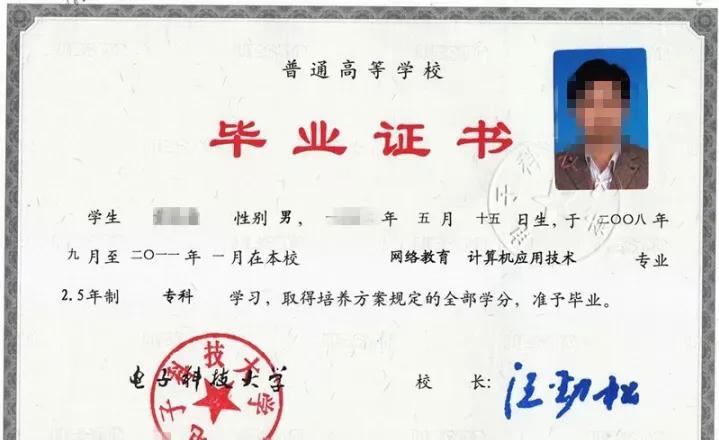 普通高等学校
毕业证书
学生 性别 男, 年 五月 十五 日生,于 二〇〇八年
九月至 二〇一一年 一月在本校 网络教育 计算机应用技术 专业
2.5年制 专科 学习,取得培养方案规定的全部学分,准予毕业。
电子科技大学 校 长: 汪劲松